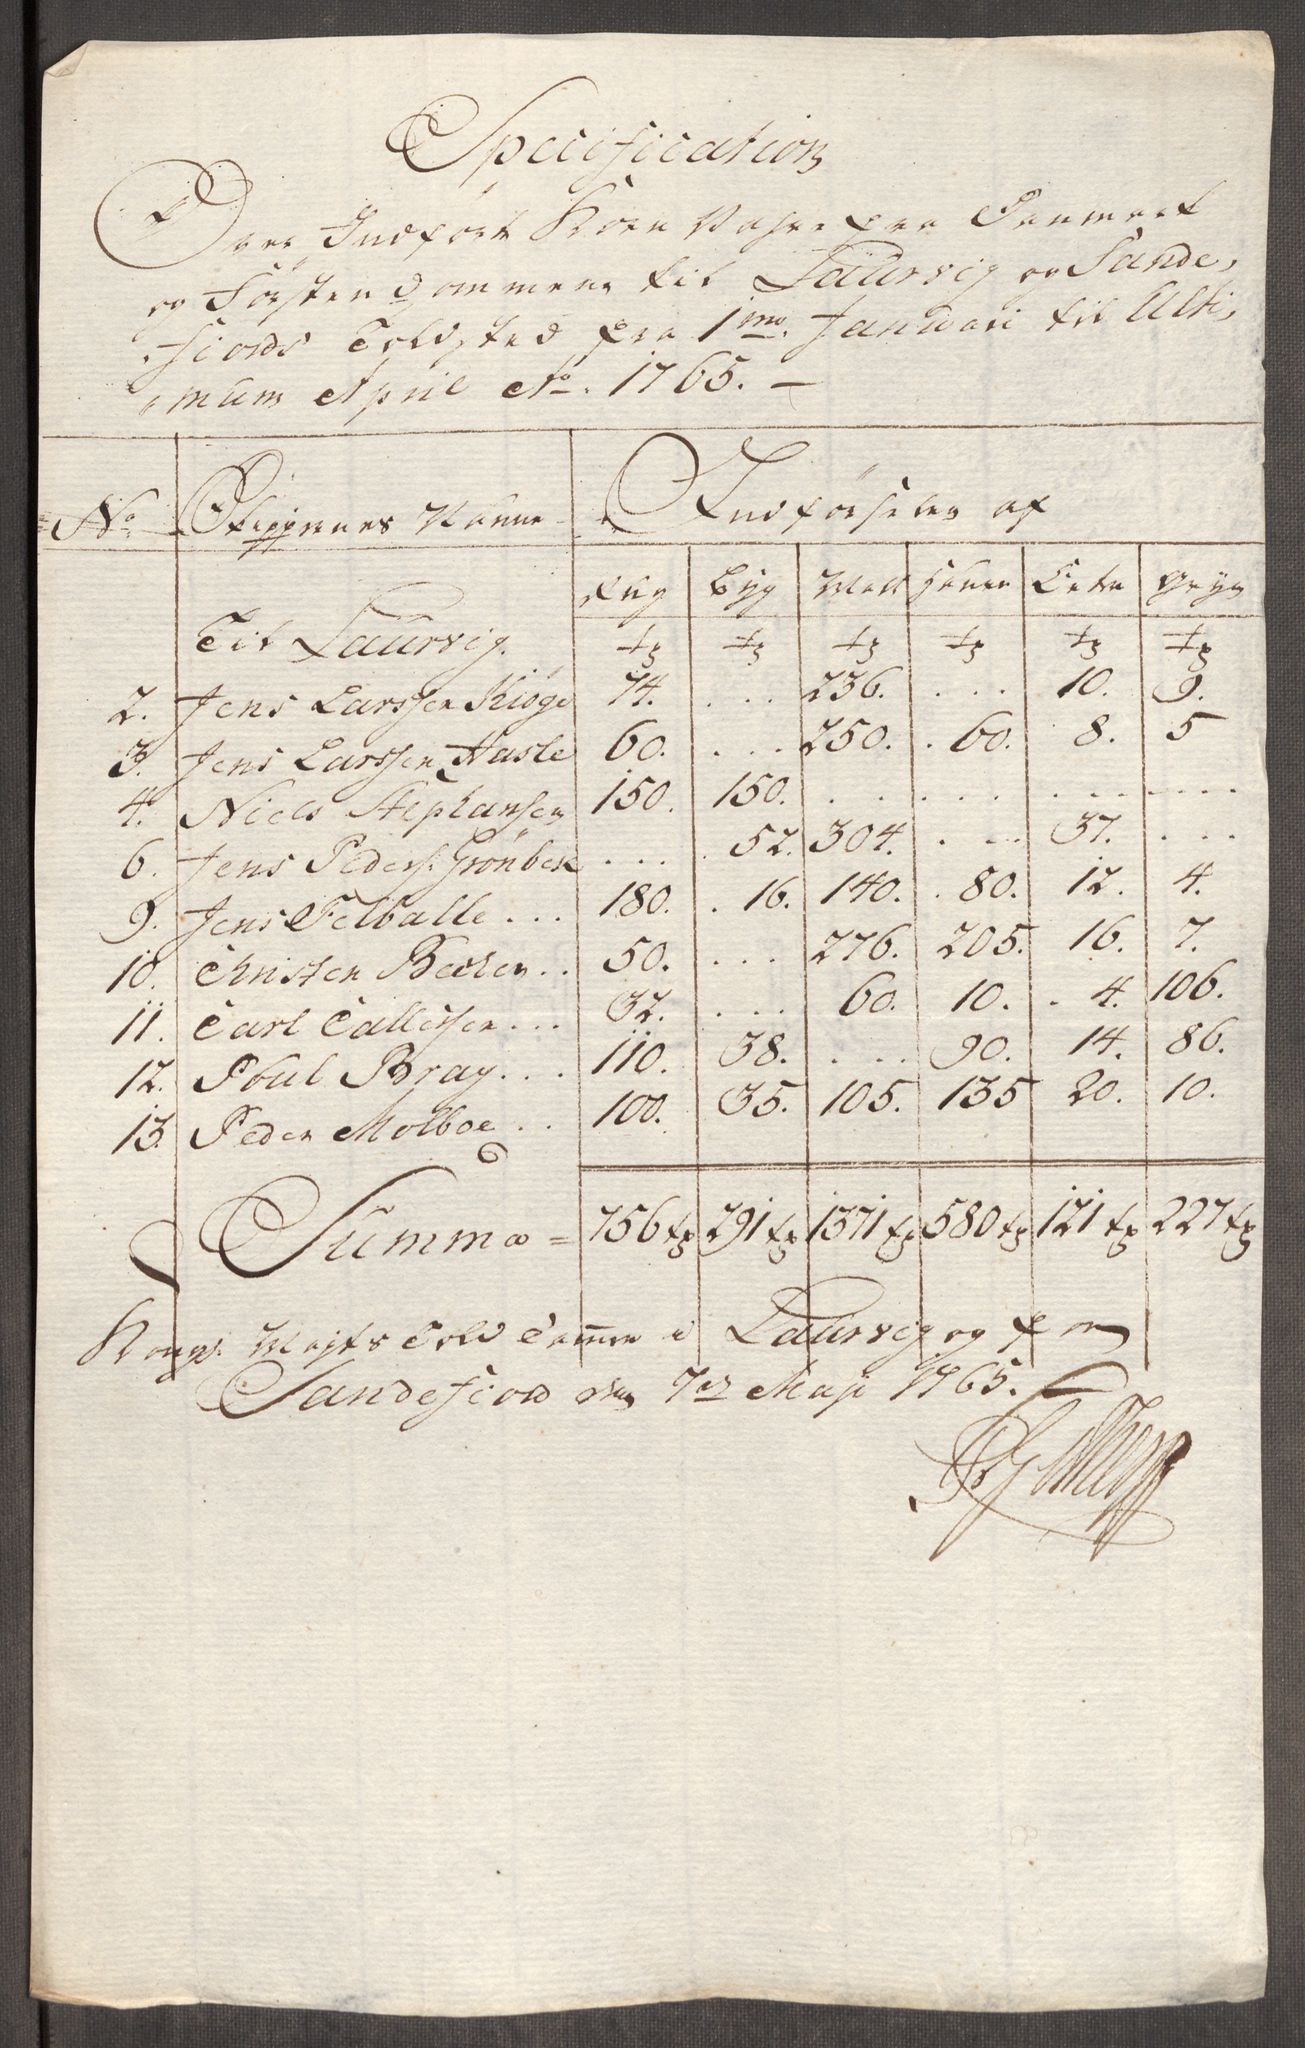 Specification
Over Indført Korn Vahre fra Danmark
og Førstendommene til Laurvig og Sande-
fiords Toldsted fra 1mo Januari til Ulti-
mum April Ao. 1765. —
No. Skippernes Nafne Indførselen af
Rug Byg Malt Hafre Erter Gryn
Til Laurvig. tr tr tr tr tr tr
2. Jens Larssen Kiøge 74. ... 236. ... 10. 9.
3. Jens Larssen Hasle 60. ... 250. . 60. 8. 5
4. Niels Stephansen 150. 150. ... ... ... ...
6. Jens Peders. Grønbek ... . 52. 304. ... 37. ...
9. Jens Felballe ... 180. . 16. 140. . 80. 12. 4.
10. Christen Becker .. 50. ... 276. 205. 16. 7.
11. Carl Callissen ... 32. ... 60. 10. . 4. 106.
12. Poul Bray ... 110. 38. ... 90. 14. 86.
13. Peder Molboe .. 100. 35. 105. 135 20. 10.
Summa = 756 tr 291 tr 1371 tr 580 tr 121 tr 227 tr
Kongl. Mayts Told Cammer i Laurvig og for
Sandefiord den 7de Maji 1765.